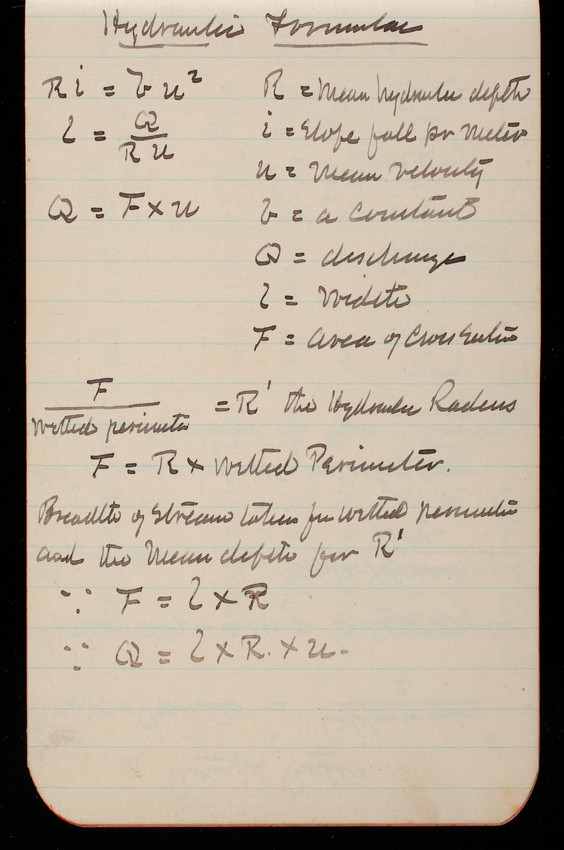 Hydraulic Formulae
R i = b u²
l = Q / R u
Q = F × u
R = Mean hydraulic depth
i = Slope fall pr meter
u = Mean velocity
b = a Constant
Q = discharge
l = Width
F = Area of Cross Section
F / Wetted perimeter = R' the Hydraulic Radius
F = R × Wetted Perimeter.
Breadth of Stream taken for wetted perimeter
and the Mean depth for R'
∵ F = l × R
∵ Q = l × R. × u.